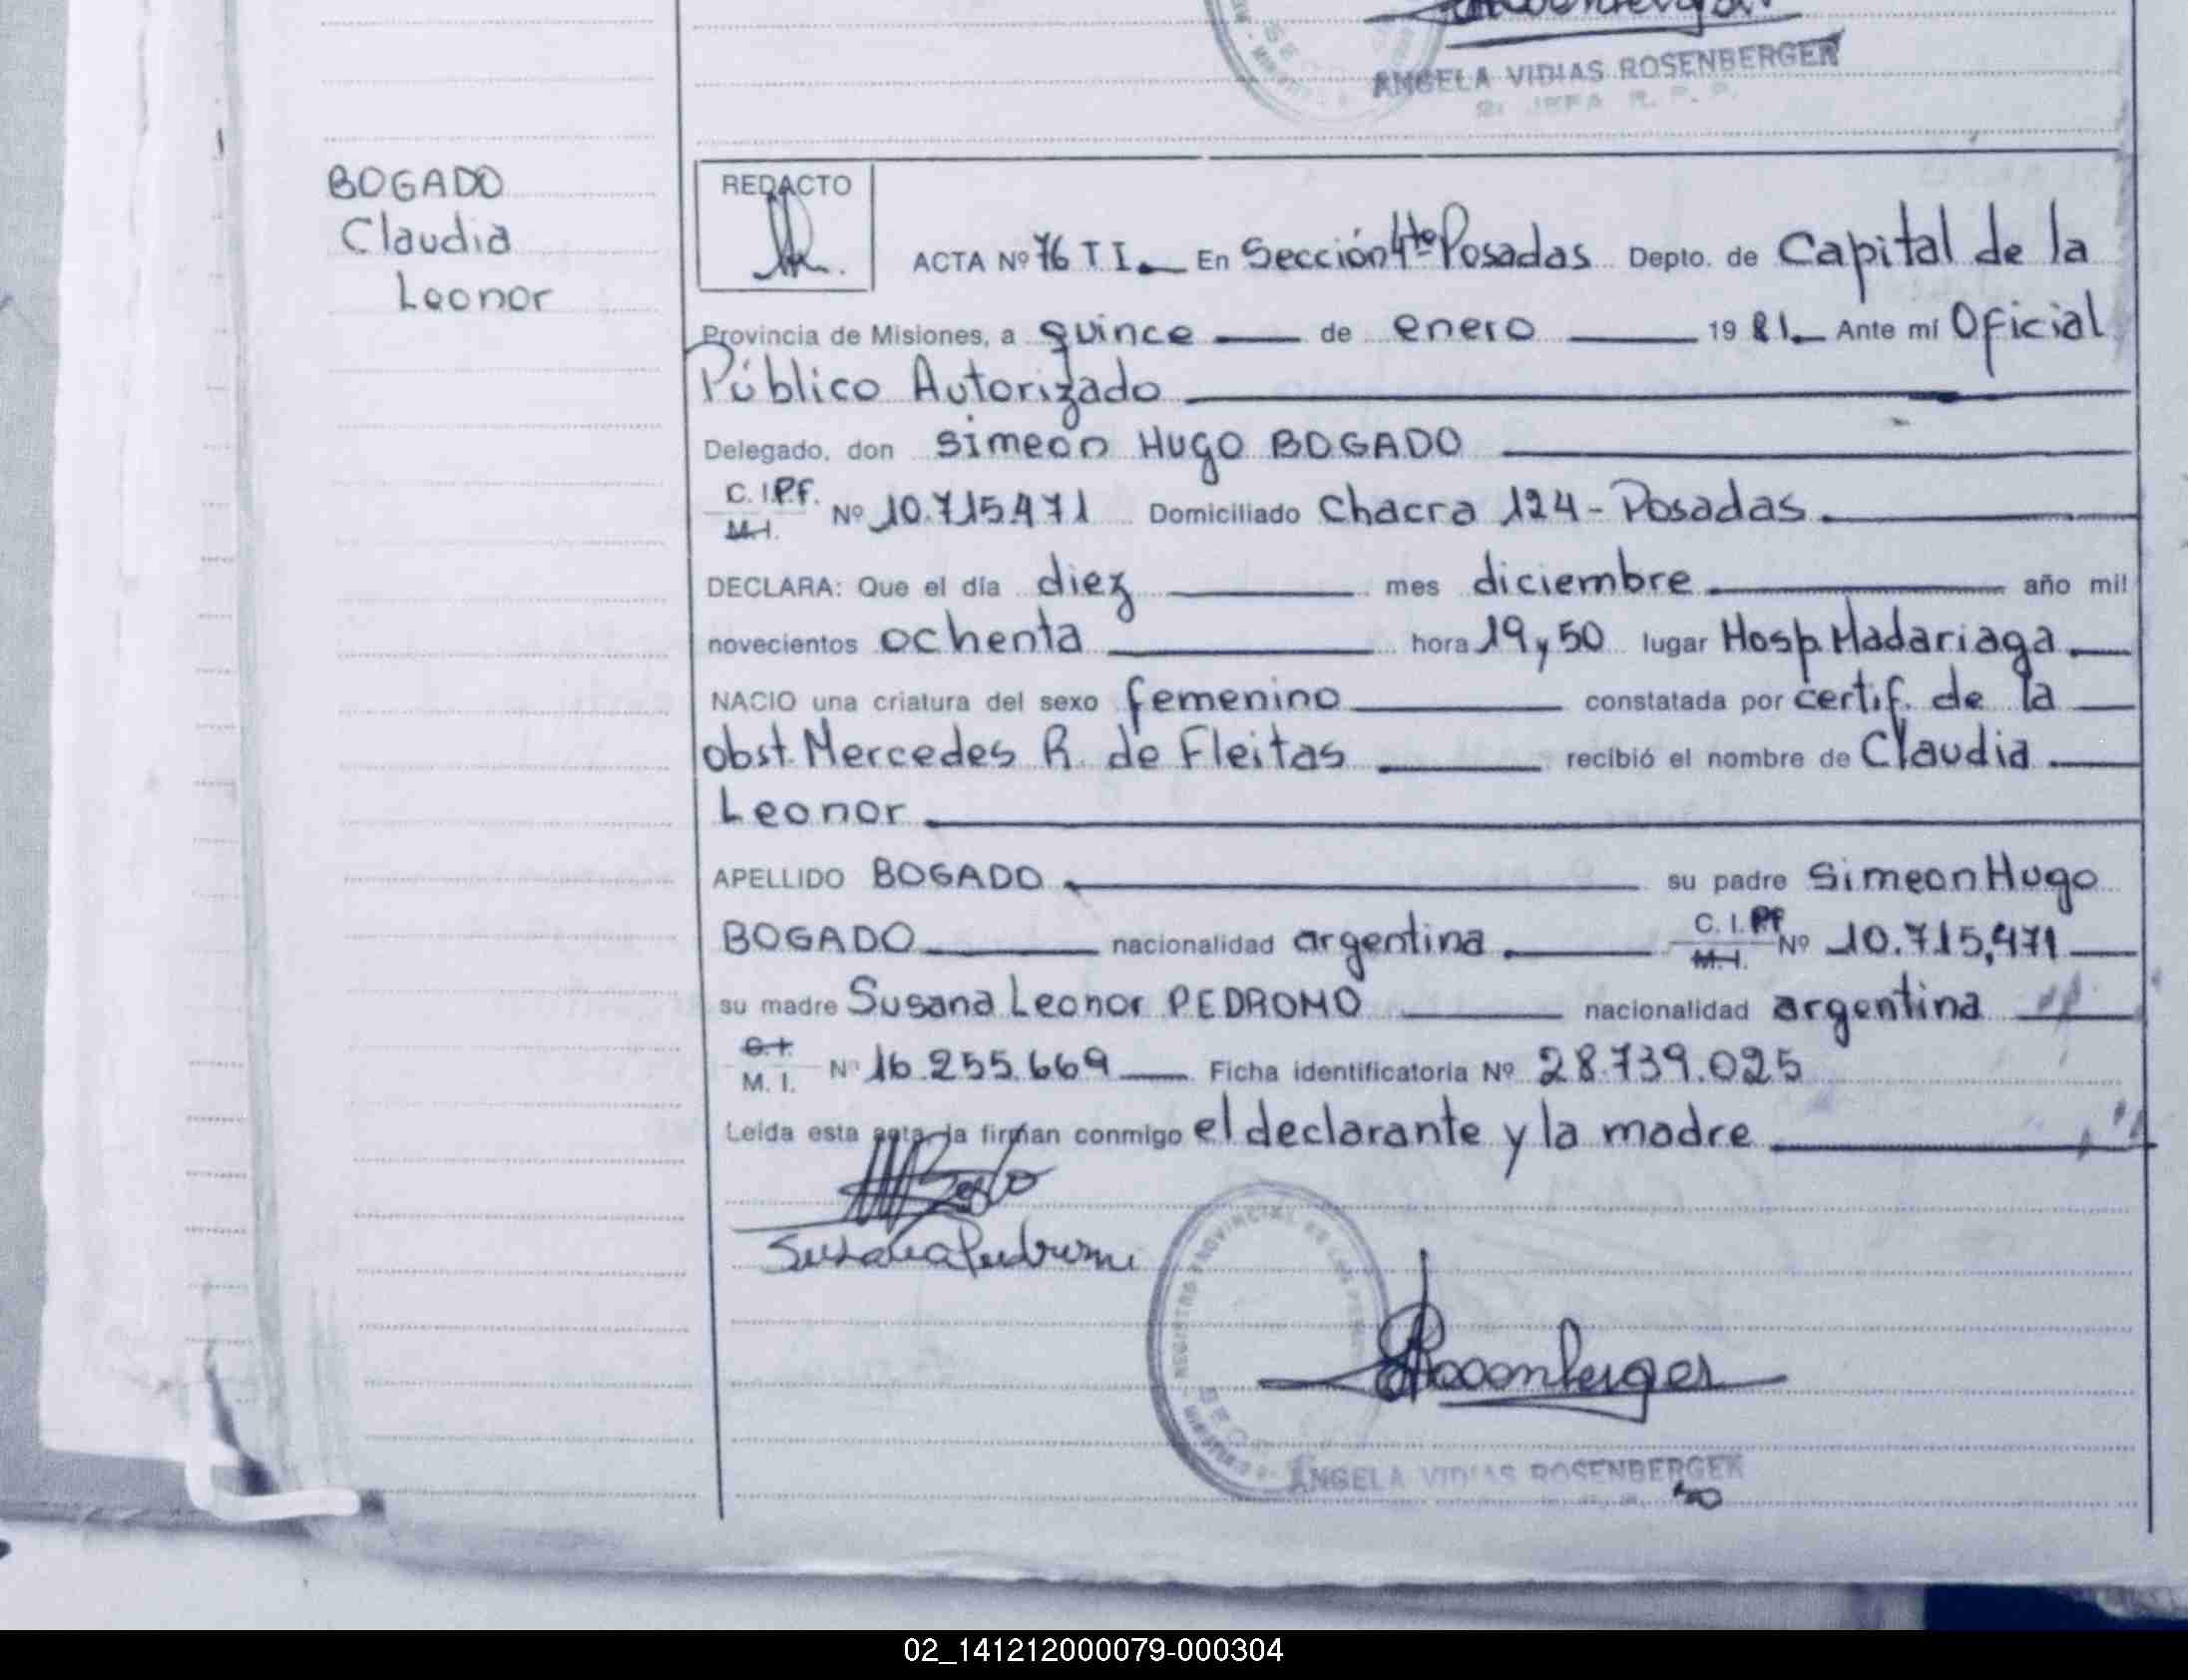 ANGELA VIDIAS ROSENBERGER
BOGADO
Claudia
Leonor
REDACTO
ACTA Nº 76 T I. En Sección 4ta Posadas Depto. de Capital de la
Provincia de Misiones, a quince de enero 1981. Ante mí Oficial
Público Autorizado
Delegado, don Simeon Hugo BOGADO
C. I. P.F.
M.I.
Nº 10.715.471 Domiciliado Chacra 124 - Posadas.
DECLARA: Que el día diez mes diciembre año mil
novecientos ochenta hora 19 y 50 lugar Hosp. Madariaga
NACIO una criatura del sexo femenino constatada por certif. de la
obst. Mercedes R. de Fleitas recibió el nombre de Claudia
Leonor
APELLIDO BOGADO su padre Simeon Hugo
BOGADO nacionalidad argentina C. I. PF M.I. Nº 10.715,471
su madre Susana Leonor PEDROMO nacionalidad argentina
C.I.
M. I.
Nº 16.255.669 Ficha identificatoria Nº 28.739.025
Leída esta acta, la firman conmigo el declarante y la madre
Rosenberger
ANGELA VIDIAS ROSENBERGER
02_141212000079-000304